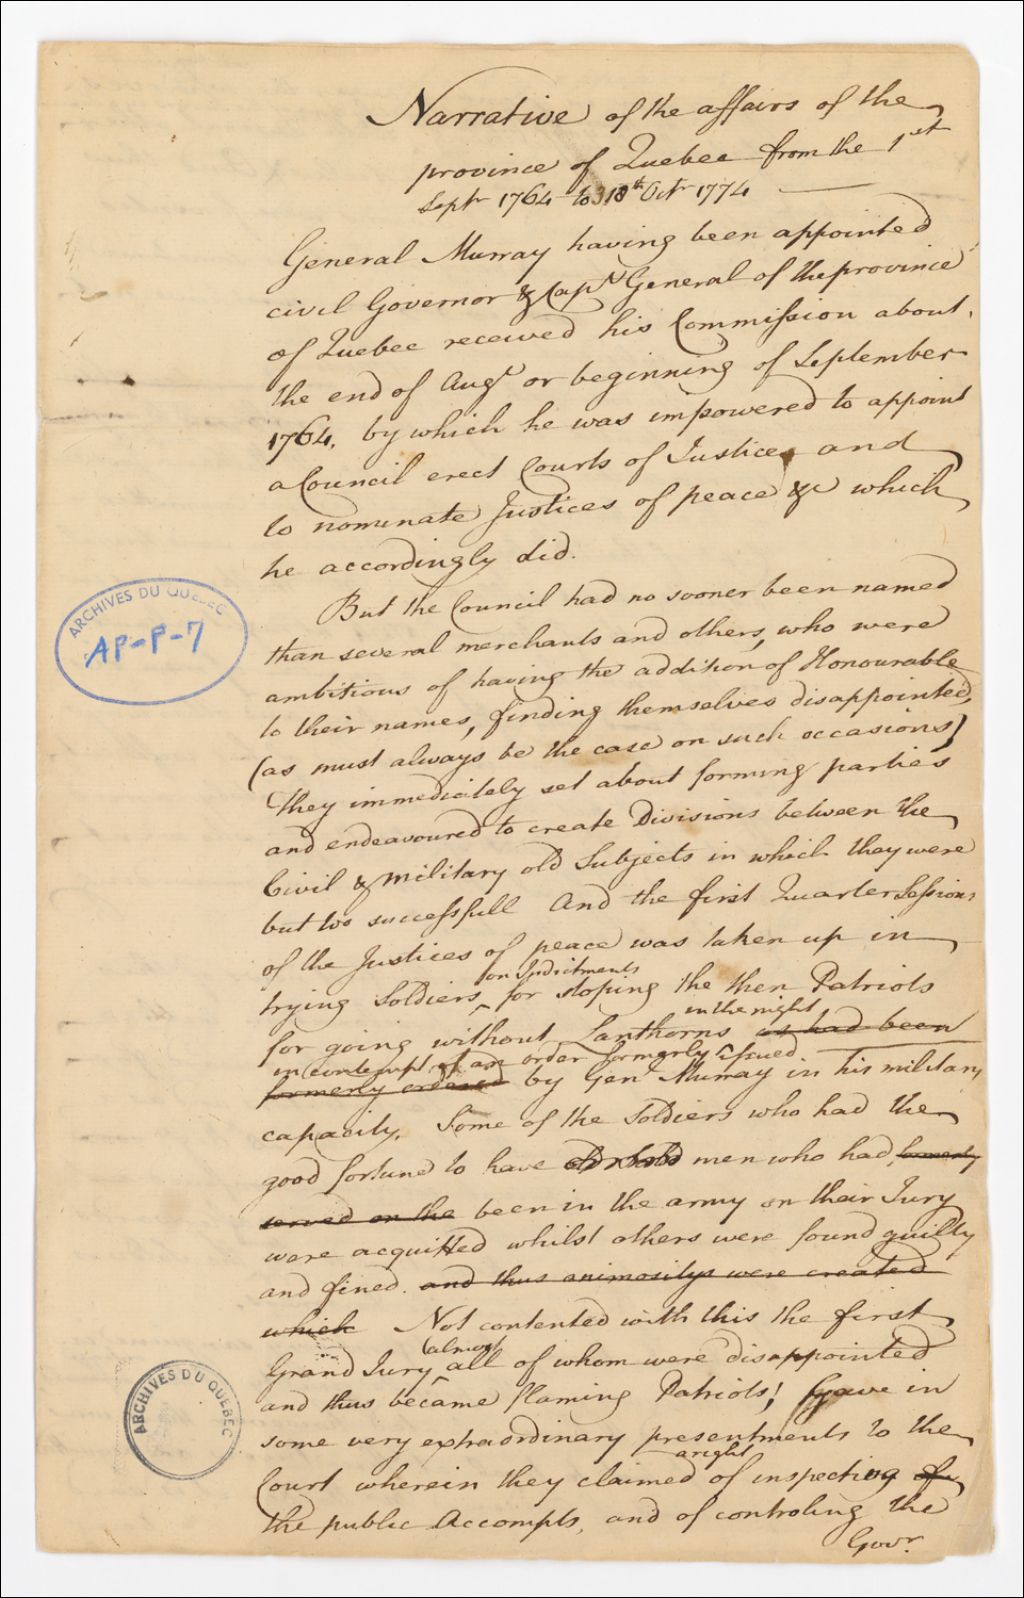 Narrative of the affairs of the
province of Quebec from the 1st
Septr 1764 to 18th Octr 1774
General Murray having been appointed
civil Governor & Capn General of the province
of Quebec received his Commission about
the end of Augt or beginning of September
1764, by which he was impowered to appoint
a Council erect Courts of Justice and
to nominate Justices of peace &c which
he accordingly did.
But the Council had no sooner been named
than several merchants and others, who were
ambitious of having the addition of Honourable
to their names, finding themselves disappointed,
(as must always be the case on such occasions)
they immediately set about forming parties
and endeavoured to create Divisions between the
Civil & military old Subjects in which they were
but too successfull And the first Quarter Sessions
of the Justices of peace was taken up in
on Indictments
trying Soldiers, for stoping the then Patriots
in the night
for going without Lanthorns as had been
in contempt of an order formerly issued
formerly ordered by Genl Murray in his military
capacity. Some of the Soldiers who had the
good fortune to have men who had formerly
served on the been in the army on their Jury
were acquitted whilst others were found guilty
and fined. and thus animositys were created
which Not contented with this the first
(almost
Grand Jury all of whom were disappointed
and thus became flaming Patriots; Gave in
some very extraordinary presentments to the
a right
Court wherein they claimed of inspecting of
the public Accompts, and of controling the
Govr.
ARCHIVES DU QUEBEC
AP-P-7
ARCHIVES DU QUEBEC